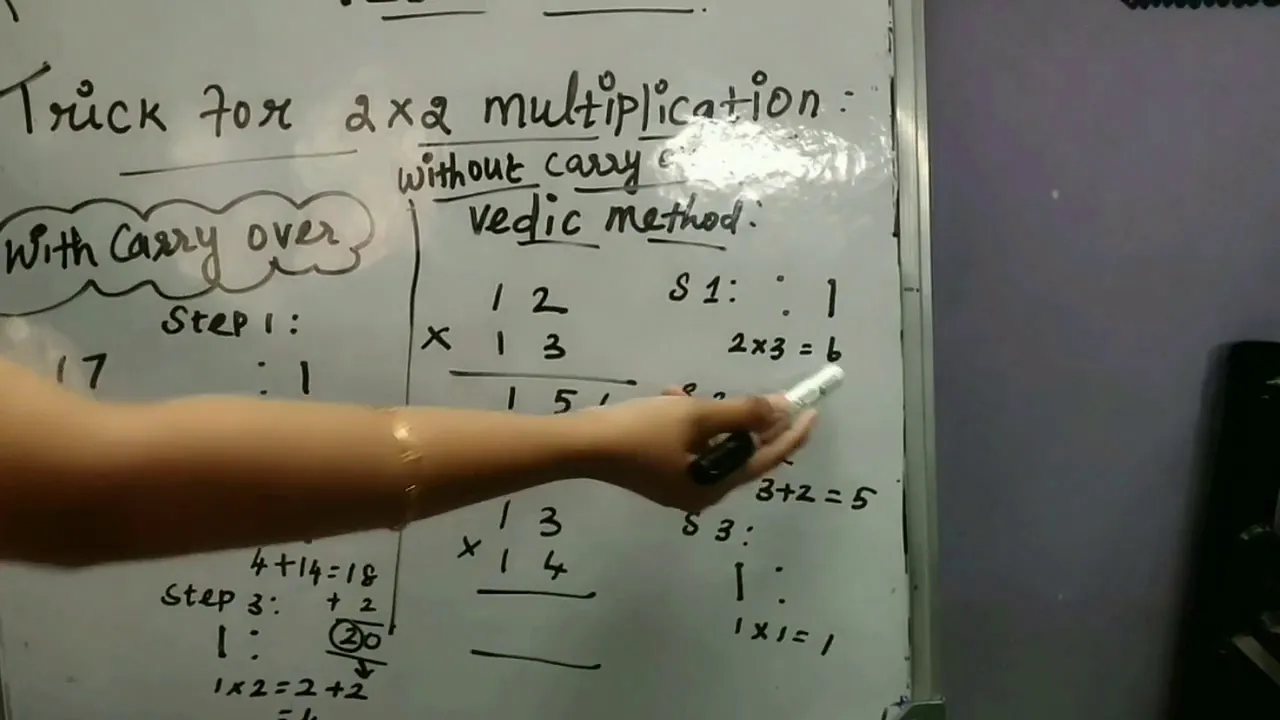 Trick for 2x2 multiplication:
without carry
Vedic method:
With Carry over
Step 1:
17
: 1
1 2
x 1 3
1 5
S 1: : 1
2x3 = 6
3+2 = 5
S 3:
1 :
1 x 1 = 1
1 3
x 1 4
4+14=18
Step 3: + 2
1 : 20
1x2=2+2